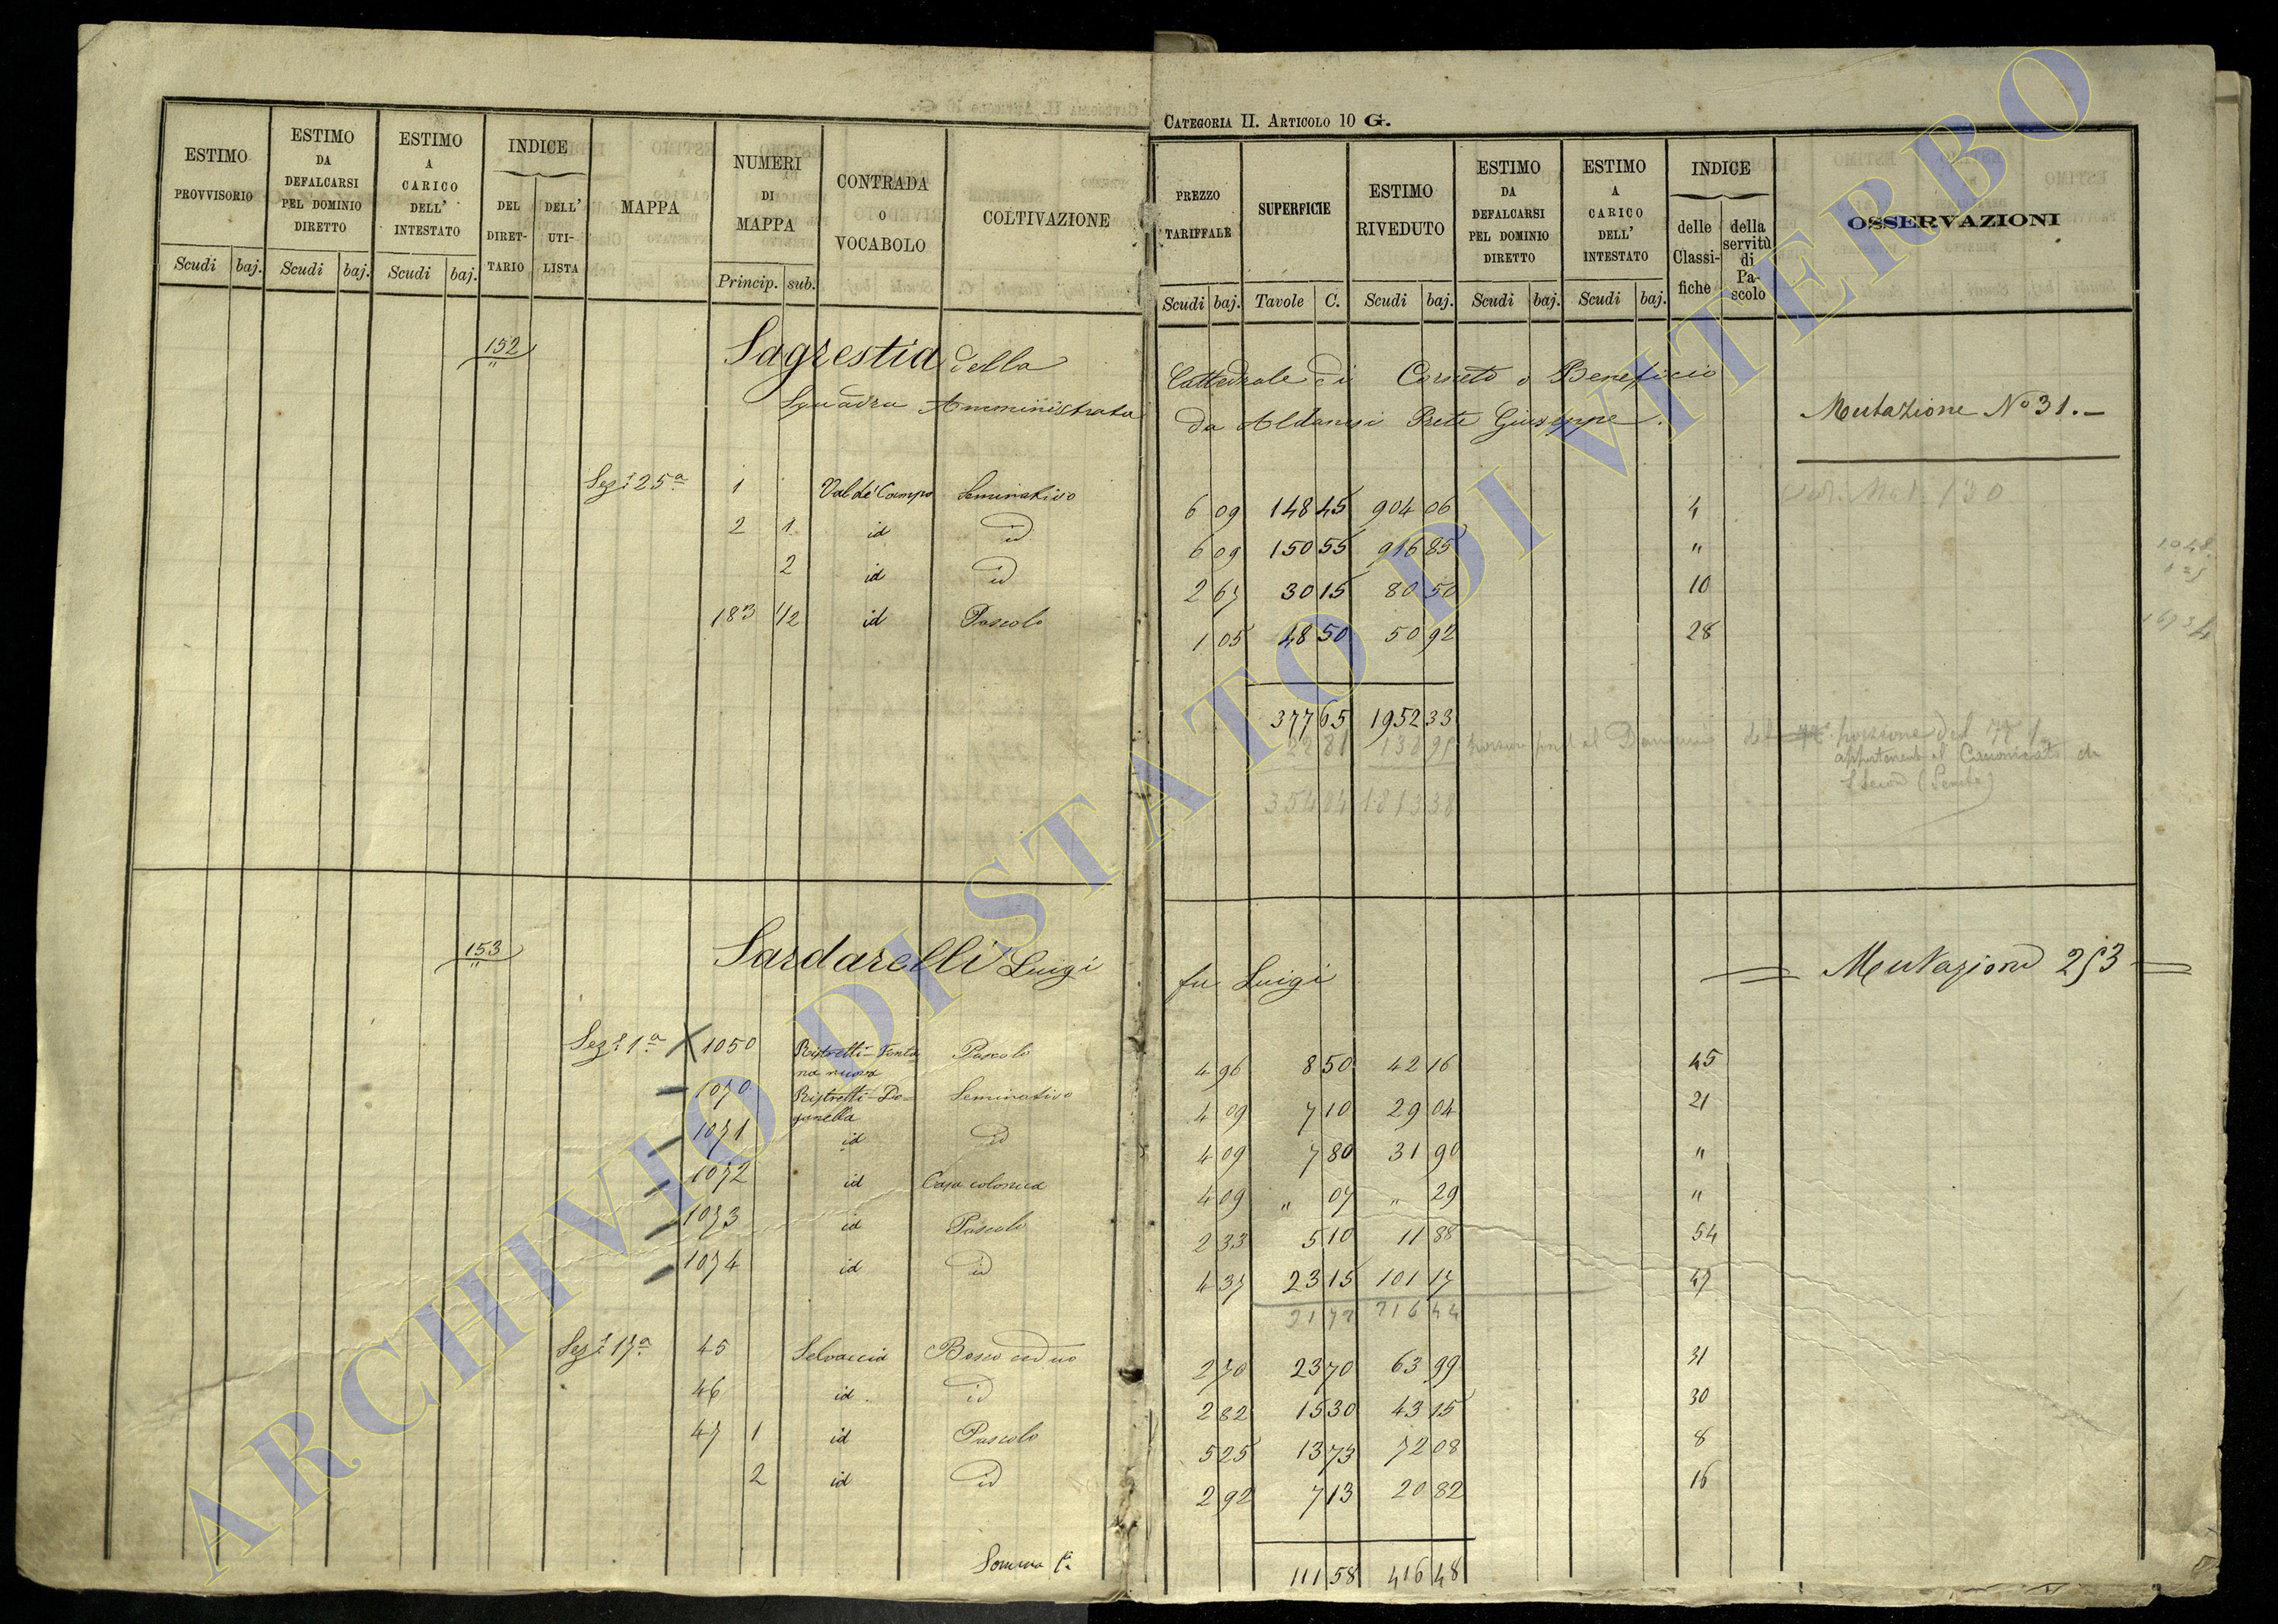 CATEGORIA II. ARTICOLO 10 G.
ESTIMO PROVVISORIO
ESTIMO DA DEFALCARSI PEL DOMINIO DIRETTO
ESTIMO A CARICO DELL' INTESTATO
INDICE
DEL DIRETTARIO
DELL' UTILISTA
MAPPA
NUMERI DI MAPPA
CONTRADA O VOCABOLO
COLTIVAZIONE
PREZZO TARIFFALE
SUPERFICIE
ESTIMO RIVEDUTO
ESTIMO DA DEFALCARSI PEL DOMINIO DIRETTO
ESTIMO A CARICO DELL' INTESTATO
INDICE
delle Classifiche
della servitù di Pascolo
OSSERVAZIONI
Scudi baj. Scudi baj. Scudi baj. Princip. sub.
Scudi baj. Tavole C. Scudi baj. Scudi baj. Scudi baj.
152 Sagrestia della Cattedrale di Corneto o Beneficio
Squadra Amministrata da Aldanesi Prete Giuseppe.
Mutazione No 31.
Sez.e 25a 1 Val de' Campo Seminativo 6 09 148 45 904 06 4
2 1 id id 6 09 150 55 916 85 "
2 id id 2 67 30 15 80 50 10
183 1/2 id Pascolo 1 05 48 50 50 92 28
377 65 1952 33
22 81 138 95
354 84 1813 38
153 Sardarelli Luigi fu Luigi
Mutazione 253
Sez.e 1a X 1050 Ristretti-Fontana nuova Pascolo 4 96 8 50 42 16 45
1070 Ristretti-Doganella Seminativo 4 09 7 10 29 04 21
1071 id id 4 09 7 80 31 90 "
1072 id Casa colonica 4 09 " 07 " 29 "
1073 id Pascolo 2 33 5 10 11 88 54
1074 id id 4 37 23 15 101 17 47
216 44
Sez.e 17a 45 Selvaccia Bosco ceduo 2 70 23 70 63 99 31
46 id id 2 82 15 30 43 15 30
47 1 id Pascolo 5 25 13 73 72 08 8
2 id id 2 92 7 13 20 82 16
Somma 111 58 416 48
ARCHIVIO DI STATO DI VITERBO